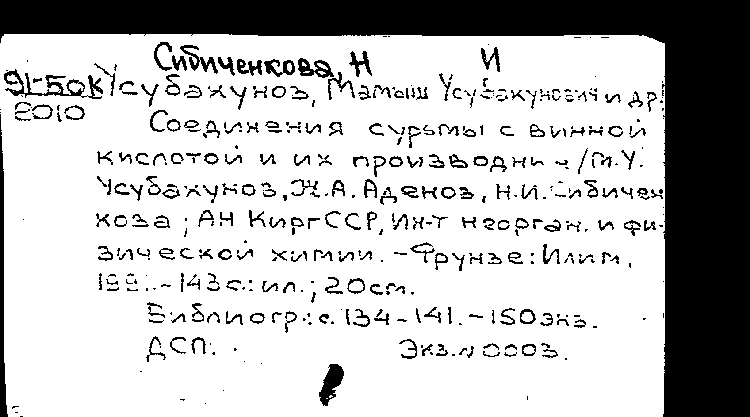 Сибиченкова, Н И
91-50К Усубакунов, Мамыш Усубакунович и др.
2010
Соединения сурьмы с винной
кислотой и их производны /М.У.
Усубакунов, Ж.А. Аденов, Н.И. Сибичен
кова ; АН КиргССР, Ин-т неорган. и фи-
зической химии. - Фрунзе : Илим,
199. - 143 с. : ил. ; 20 см.
Библиогр.: с. 134-141. - 150 экз.
ДСП. Экз. N 0003.